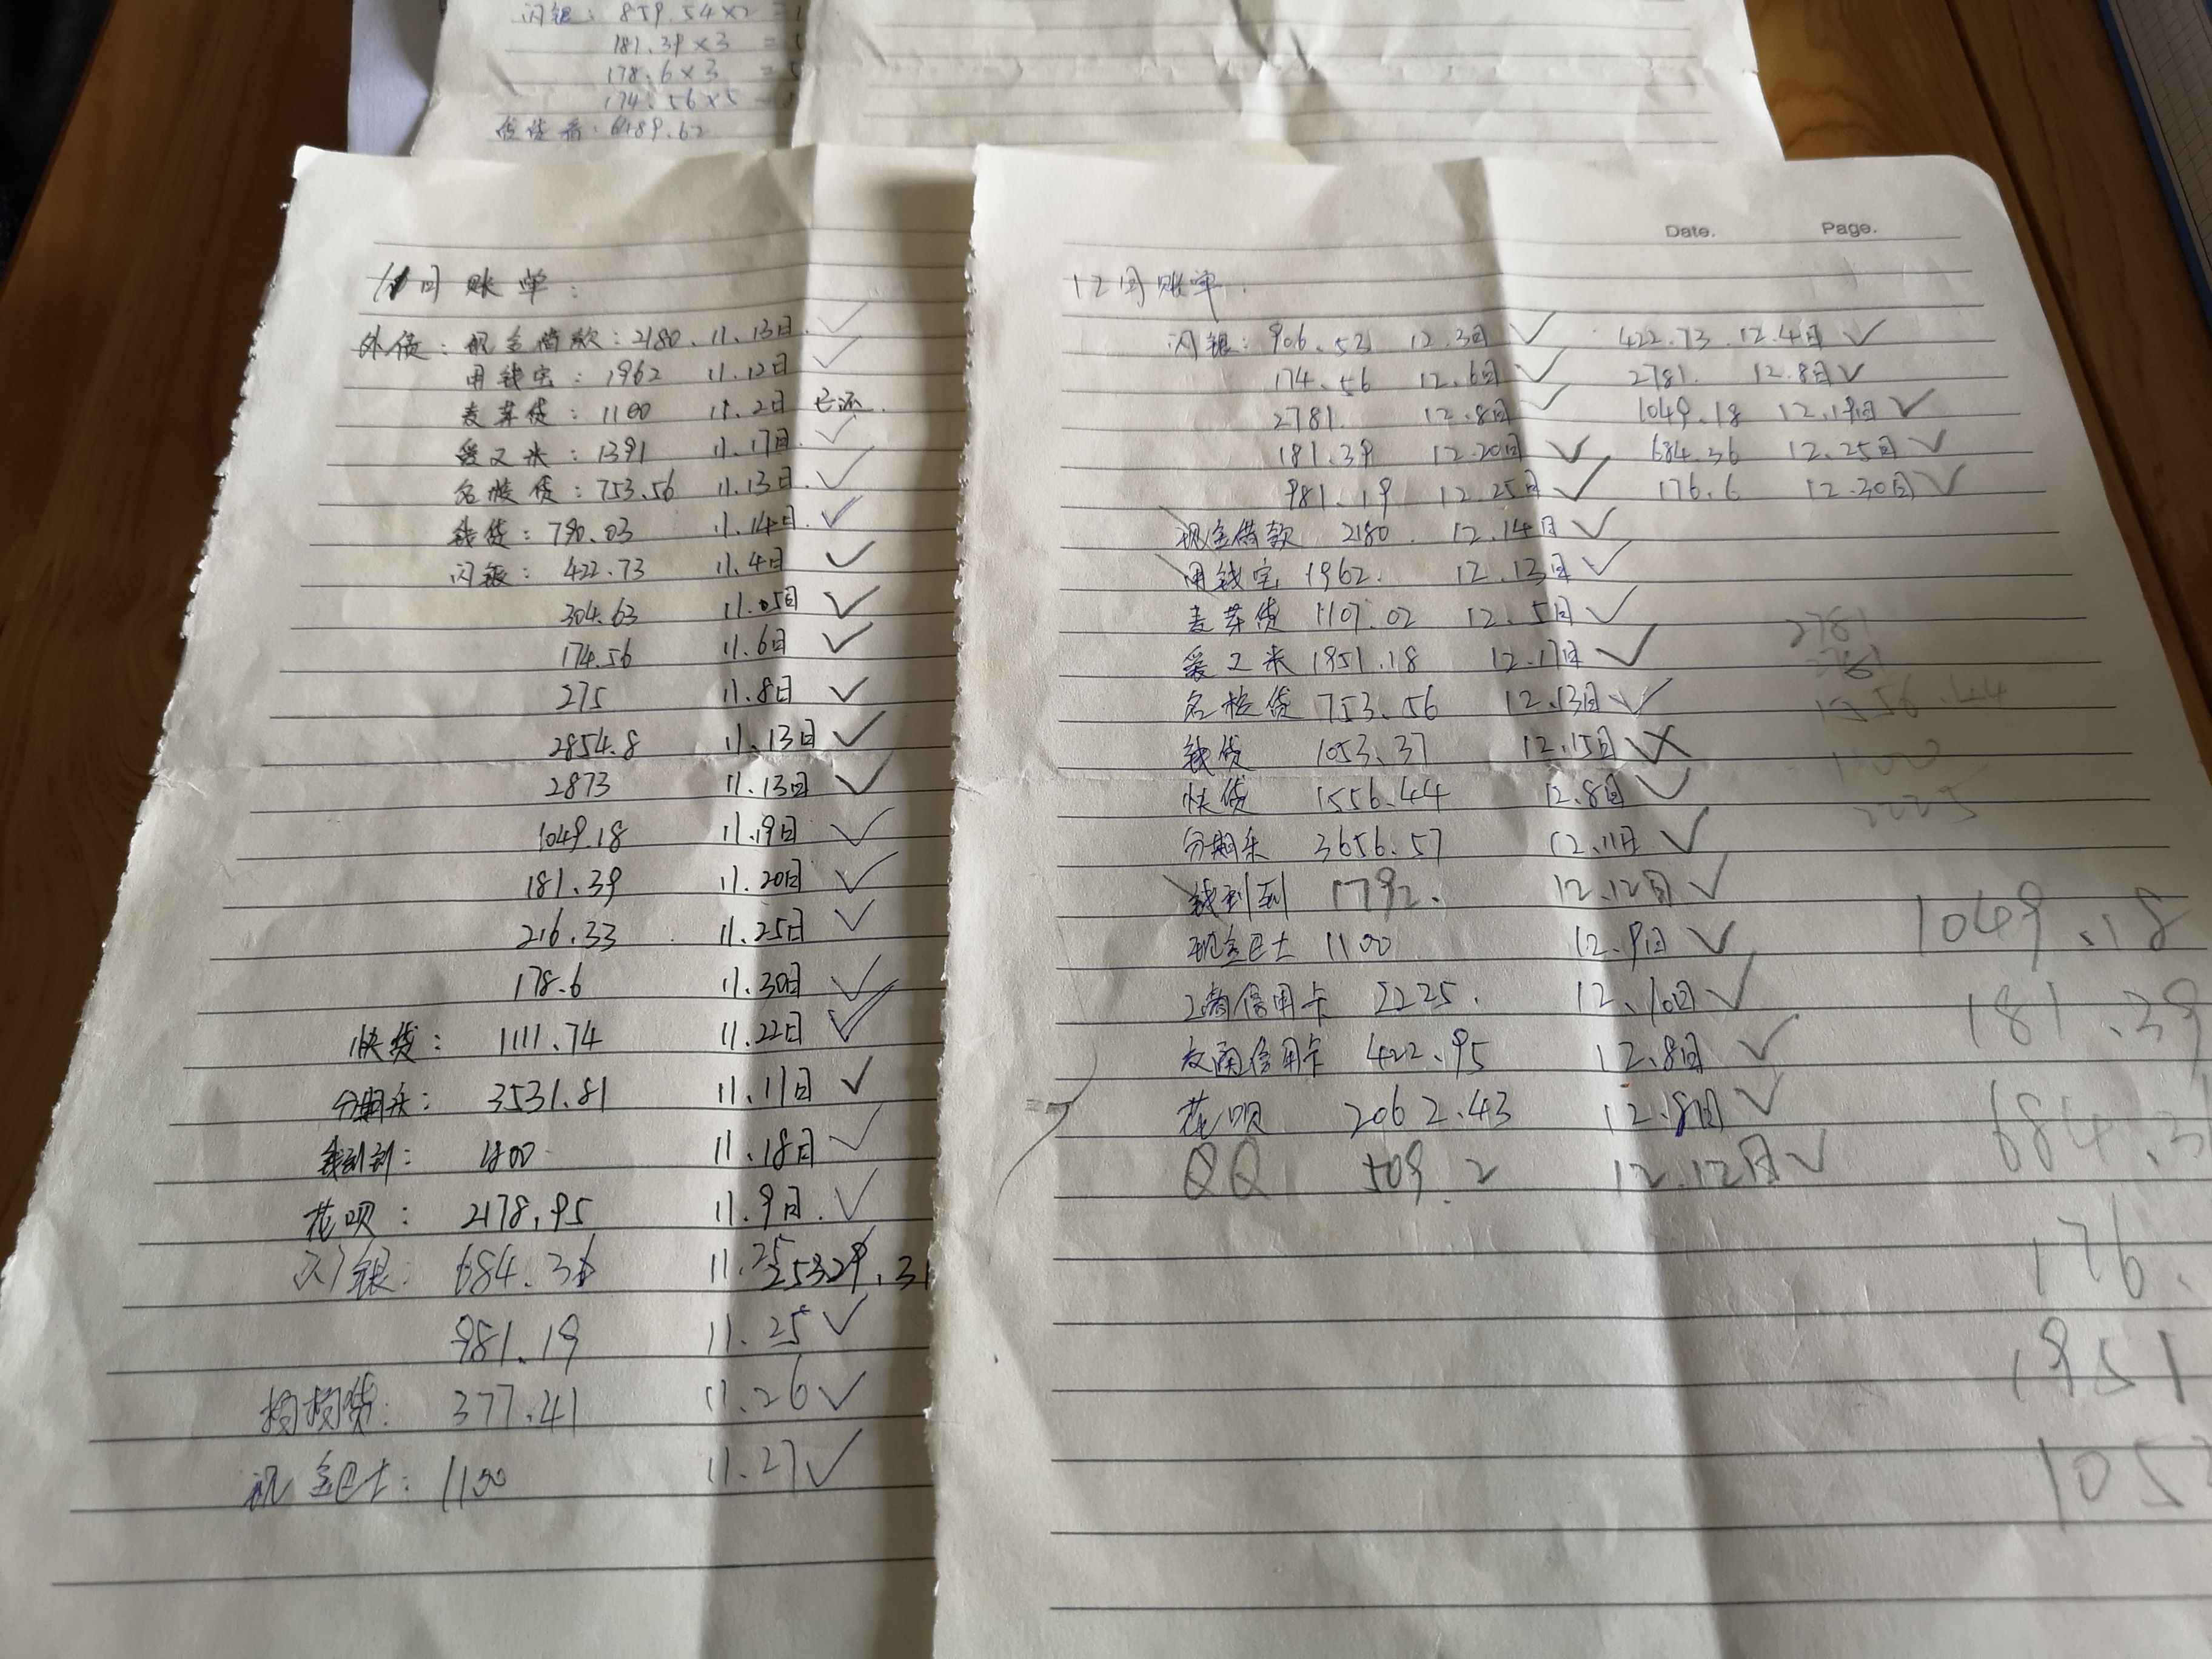 闪银: 859.54×2 =
181.39×3 =
178.6×3 =
174.56×5
6489.62
11月账单:
外债: 现金借款: 2180. 11.13日 ✓
用钱宝: 1962 11.12日 ✓
麦芽贷: 1100 11.2日 已还.
爱又米: 1391 11.17日 ✓
名校贷: 753.56 11.13日 ✓
钱贷: 790.03 11.14日 ✓
闪银: 422.73 11.4日 ✓
304.63 11.05日 ✓
174.56 11.6日 ✓
275 11.8日 ✓
2854.8 11.13日 ✓
2873 11.13日 ✓
1049.18 11.19日 ✓
181.39 11.20日 ✓
216.33 11.25日 ✓
178.6 11.30日 ✓
快贷: 1111.74 11.22日 ✓
分期乐: 3531.81 11.11日 ✓
钱到到: 1800 11.18日 ✓
花呗: 2178.95 11.9日. ✓
闪银: 684.36 11.25 25329.31
981.19 11.25 ✓
377.41 11.26 ✓
现金巴士: 1100 11.27 ✓
Date. Page.
12月账单.
闪银: 906.53 12.3日 ✓ 422.73 12.4日 ✓
174.56 12.6日 ✓ 2781. 12.8日 ✓
2781. 12.8日 ✓ 1049.18 12.19日 ✓
181.39 12.20日 ✓ 684.36 12.25日 ✓
981.19 12.25日 ✓ 176.6 12.30日 ✓
现金借款 2180. 12.14日 ✓
用钱宝 1962. 12.13日 ✓
麦芽贷 1107.02 12.5日 ✓
爱又米 1951.18 12.17日 ✓
名校贷 753.56 12.13日 ✓
钱贷 1053.37 12.15日
快贷 1556.44 12.8日 ✓
分期乐 3656.57 12.11日 ✓
钱到到 1792. 12.12日 ✓
现金巴士 1100 12.9日 ✓
工商信用卡 2225. 12.10日 ✓
交通信用卡 422.95 12.8日 ✓
花呗 2062.43 12.8日 ✓
QQ 509.2 12.12日 ✓
2781
2781
1556.44
1100
2225
1049.18
181.39
684.3
176.
1951
105